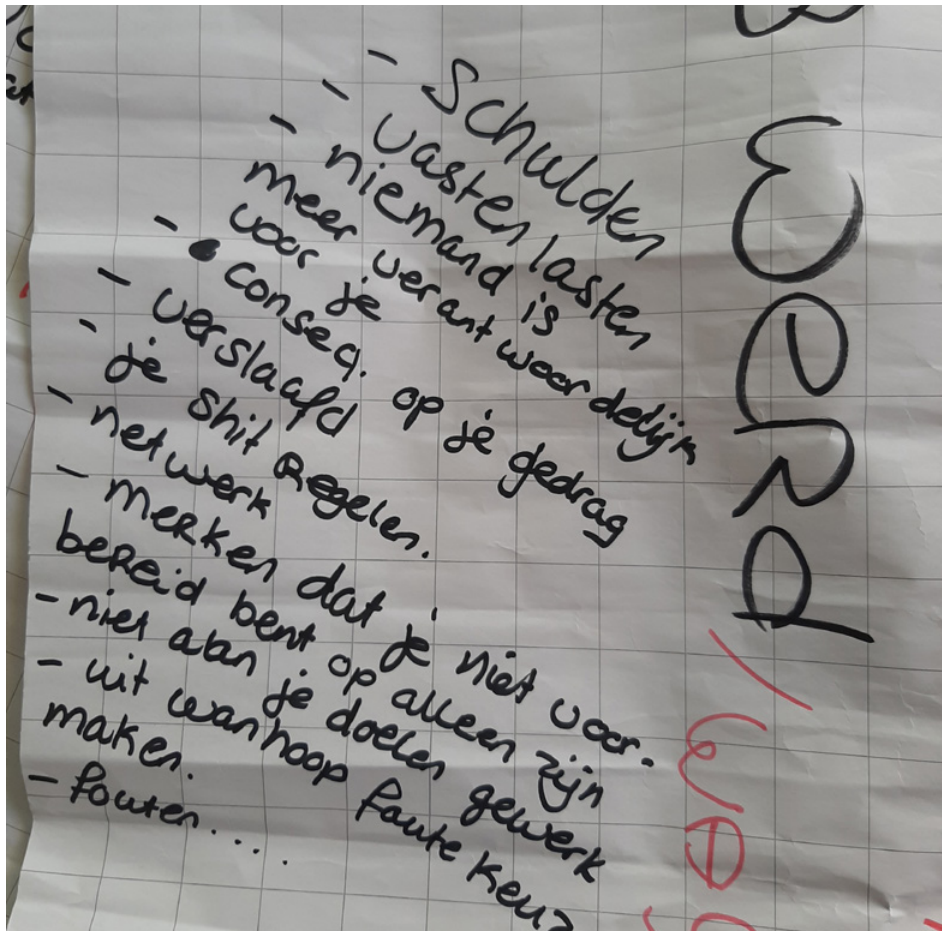 - Schulden
- vasten lasten
- niemand is
meer verantwoordelijk
voor je
- conseq. op je gedrag
- verslaafd
- je shit Regelen.
- netwerk
- merken dat je niet voor-
bereid bent op alleen zijn
- niet aan je doelen gewerk
- uit wanhoop foute keuz
maken.
- fouten....
WeRd